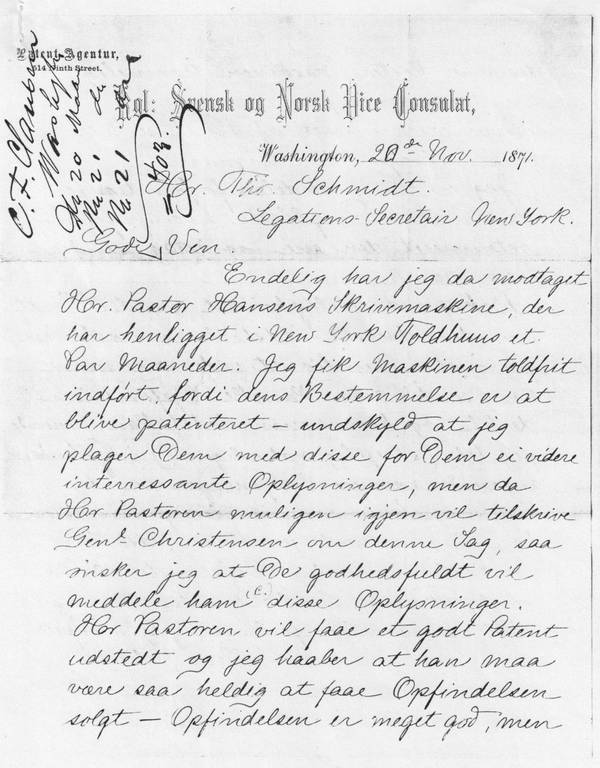 Patent-Agentur,
614 Ninth Street.
C. F. Clausen
Kgl: Svensk og Norsk Vice Consulat,
Washington, 20de Nov. 1871.
Hr. Ths. Schmidt.
Legations-Secretair New York.
Gode Ven
Endelig har jeg da modtaget
Hr. Pastor Hansens Skrivemaskine, der
har henligget i New York Toldhuus et
Par Maaneder. Jeg fik Maskinen toldfrit
indført, fordi dens Bestemmelse er at
blive patenteret – undskyld at jeg
plager Dem med disse for Dem ei videre
interressante Oplysninger, men da
Hr Pastoren muligen igjen vil tilskrive
Genl Christensen om denne Sag, saa
ønsker jeg at De godhedsfuldt vil
meddele ham (C.) disse Oplysninger.
Hr Pastoren vil faae et godt Patent
udstedt og jeg haaber at han maa
være saa heldig at faae Opfindelsen
solgt – Opfindelsen er meget god, men